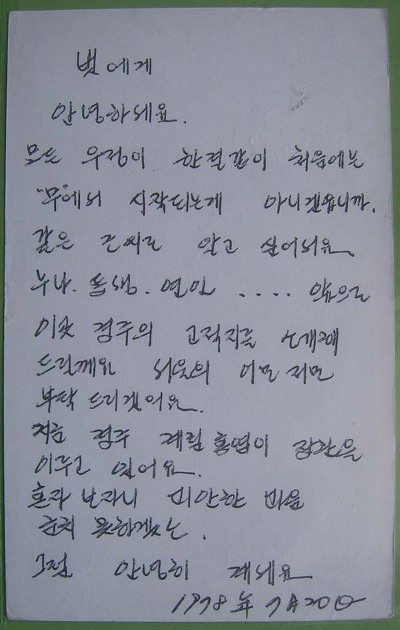 벗에게
안녕하세요.
모든 우정이 한결같이 처음에는
"무"에서 시작되는게 아니겠읍니까.
같은 글씨라 알고 싶어서요
누나. 동생. 연인 .... 앞으로
이곳 경주의 고적지를 소개해
드릴께요 서울의 이모저모
부탁 드리겠어요.
지금 경주 계림 홍엽이 장관을
이루고 있어요.
혼자 보자니 미안한 마음
금치 못하겠는.
그럼 안녕히 계세요
1978年 9月20日